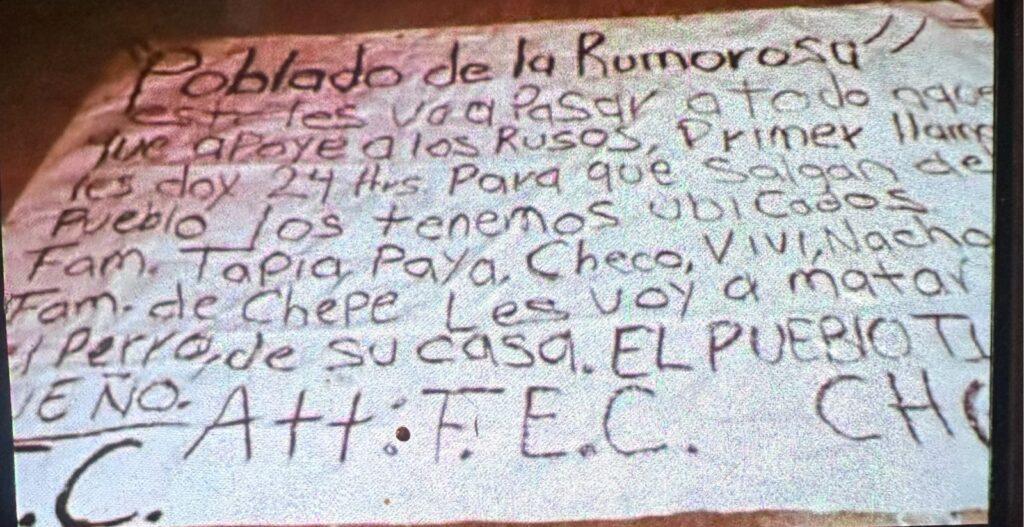 "Poblado de la Rumorosa"
esto les va a Pasar a todo nace
que apoye a los Rusos, Primer llam
les doy 24 Hrs Para que Salgan de
Pueblo los tenemos ubicados
Fam. Tapia, Paya, Checo, Vivi, Nacho
Fam. de Chepe Les voy a matar
Perro, de su casa. EL PUEBlO TI
UEÑO. Att: F.E.C. CH
.C.